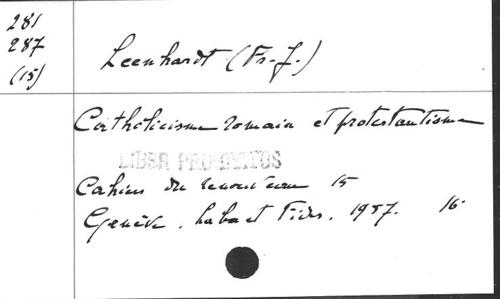 281
287
(15)
Leenhardt (Fr.-J.)
Catholicisme romain et protestantisme
LIBER PRO
Cahiers du renouveau 15
Genève, Labor et Fides, 1957. 16